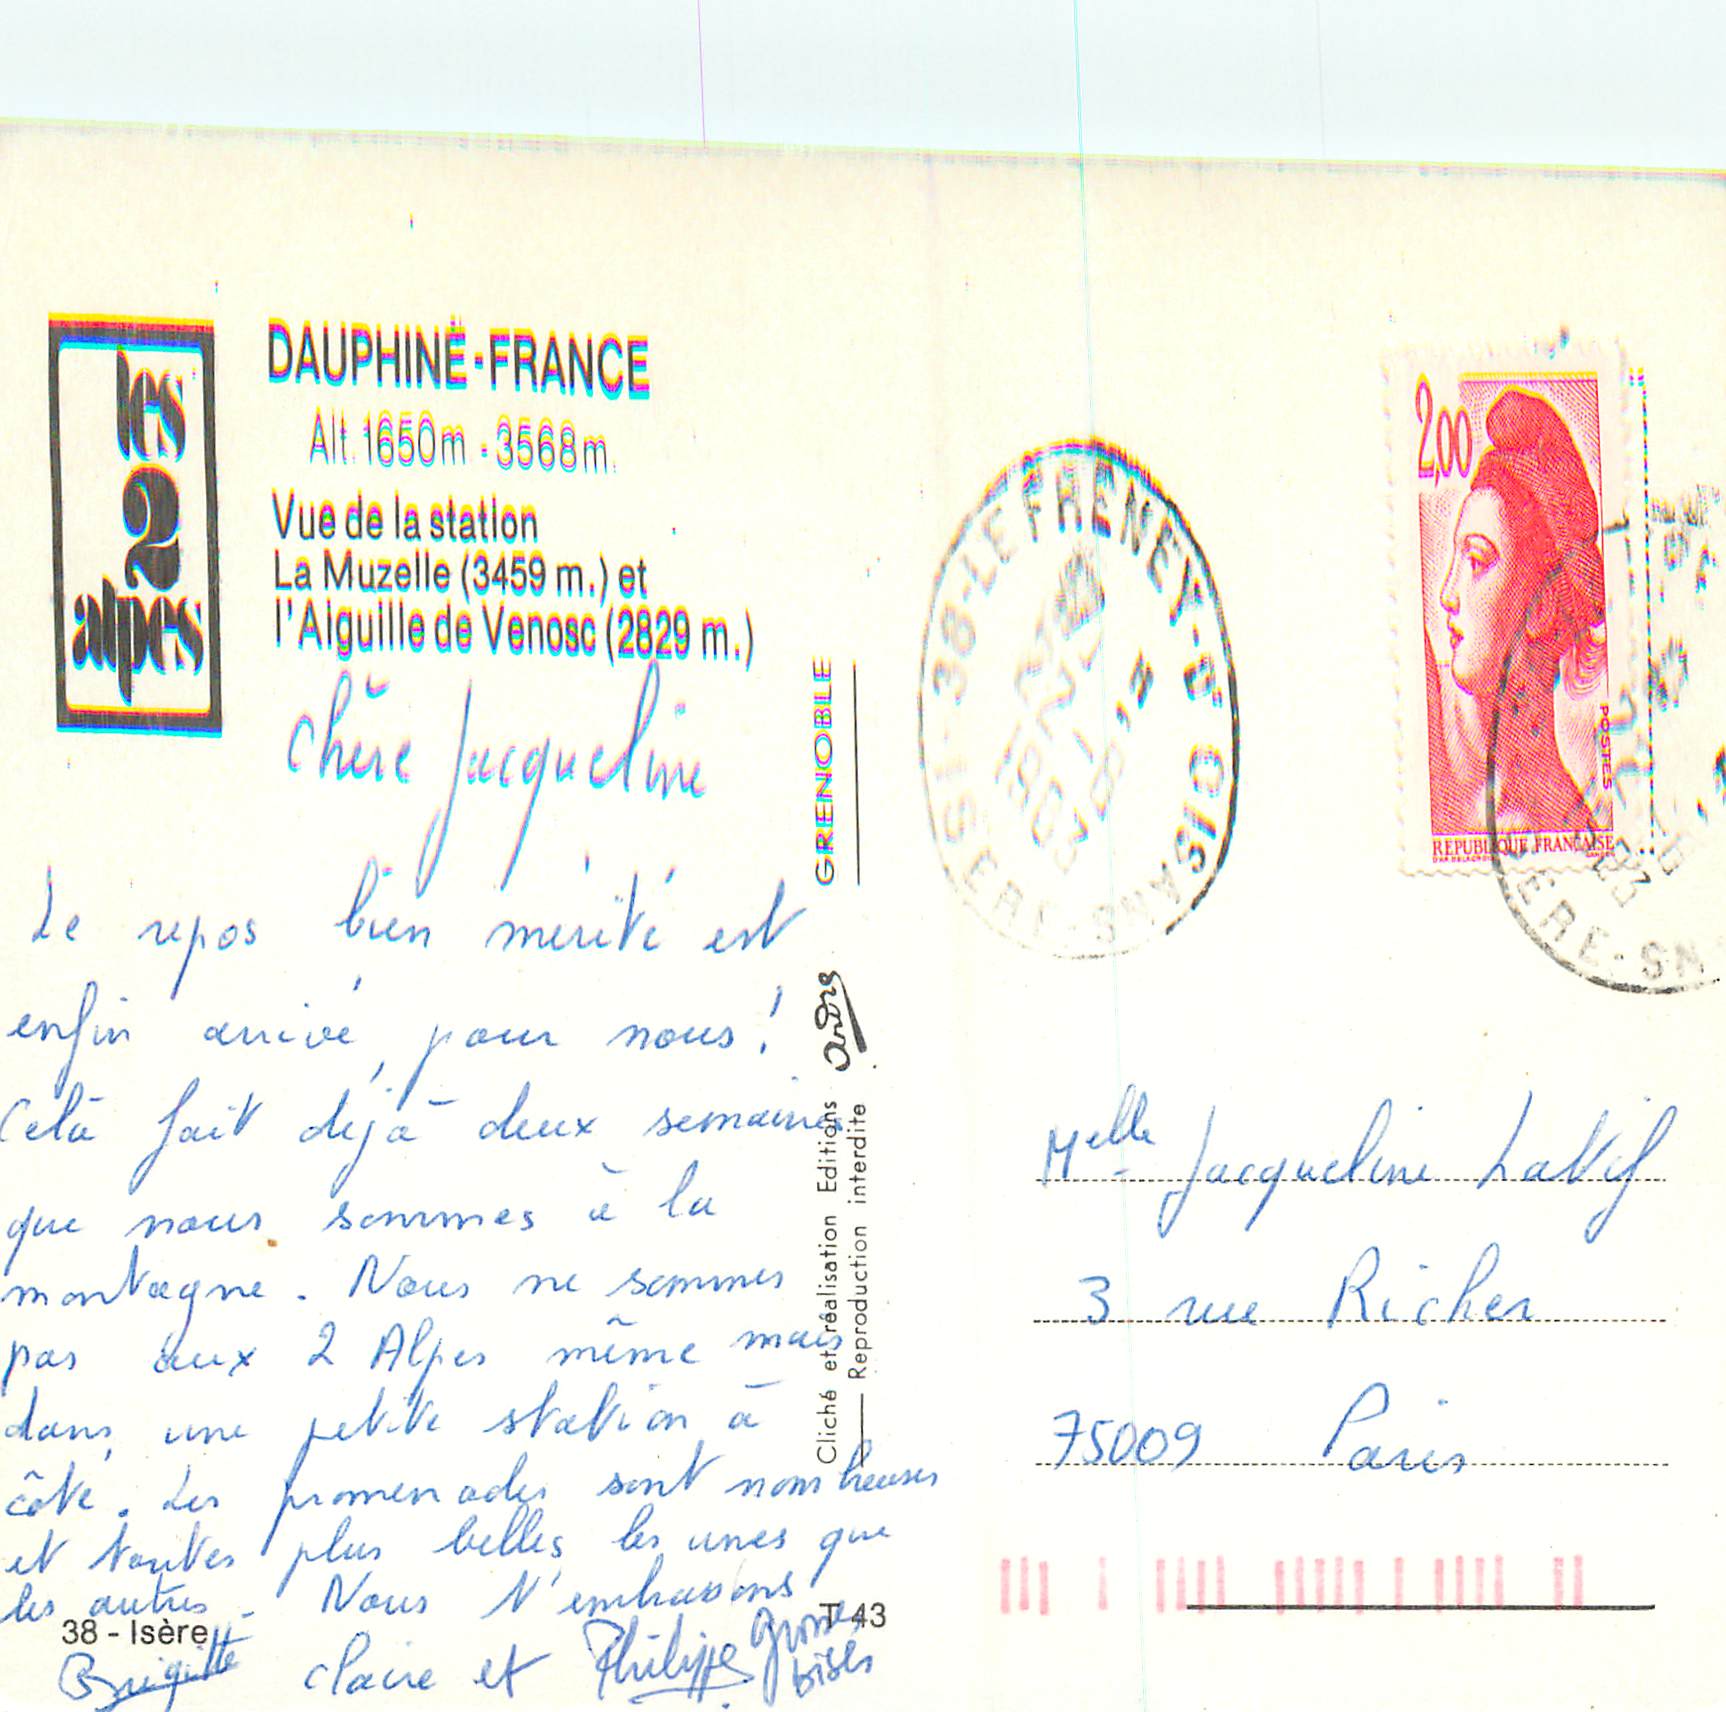 les
2
alpes
DAUPHINÉ - FRANCE
Alt. 1650 m - 3568 m.
Vue de la station
La Muzelle (3459 m.) et
l'Aiguille de Venosc (2829 m.)
Chère Jacqueline
Le repos bien mérité est
enfin arrivé pour nous !
Celà fait déjà deux semaines
que nous sommes à la
montagne. Nous ne sommes
pas aux 2 Alpes même mais
dans une petite station à
côté. Les promenades sont nombreuses
et toutes plus belles les unes que
les autres. Nous t'embrassons
38 - Isère
T 43
Brigitte Claire et Philippe
Grosses
bises
GRENOBLE
André
Cliché et réalisation Editions
Reproduction interdite
38 - LE FRENEY - D'OISANS - ISERE
1983
2,00
POSTES
REPUBLIQUE FRANÇAISE
ISERE
Melle Jacqueline Latif
3 rue Richer
75009 Paris